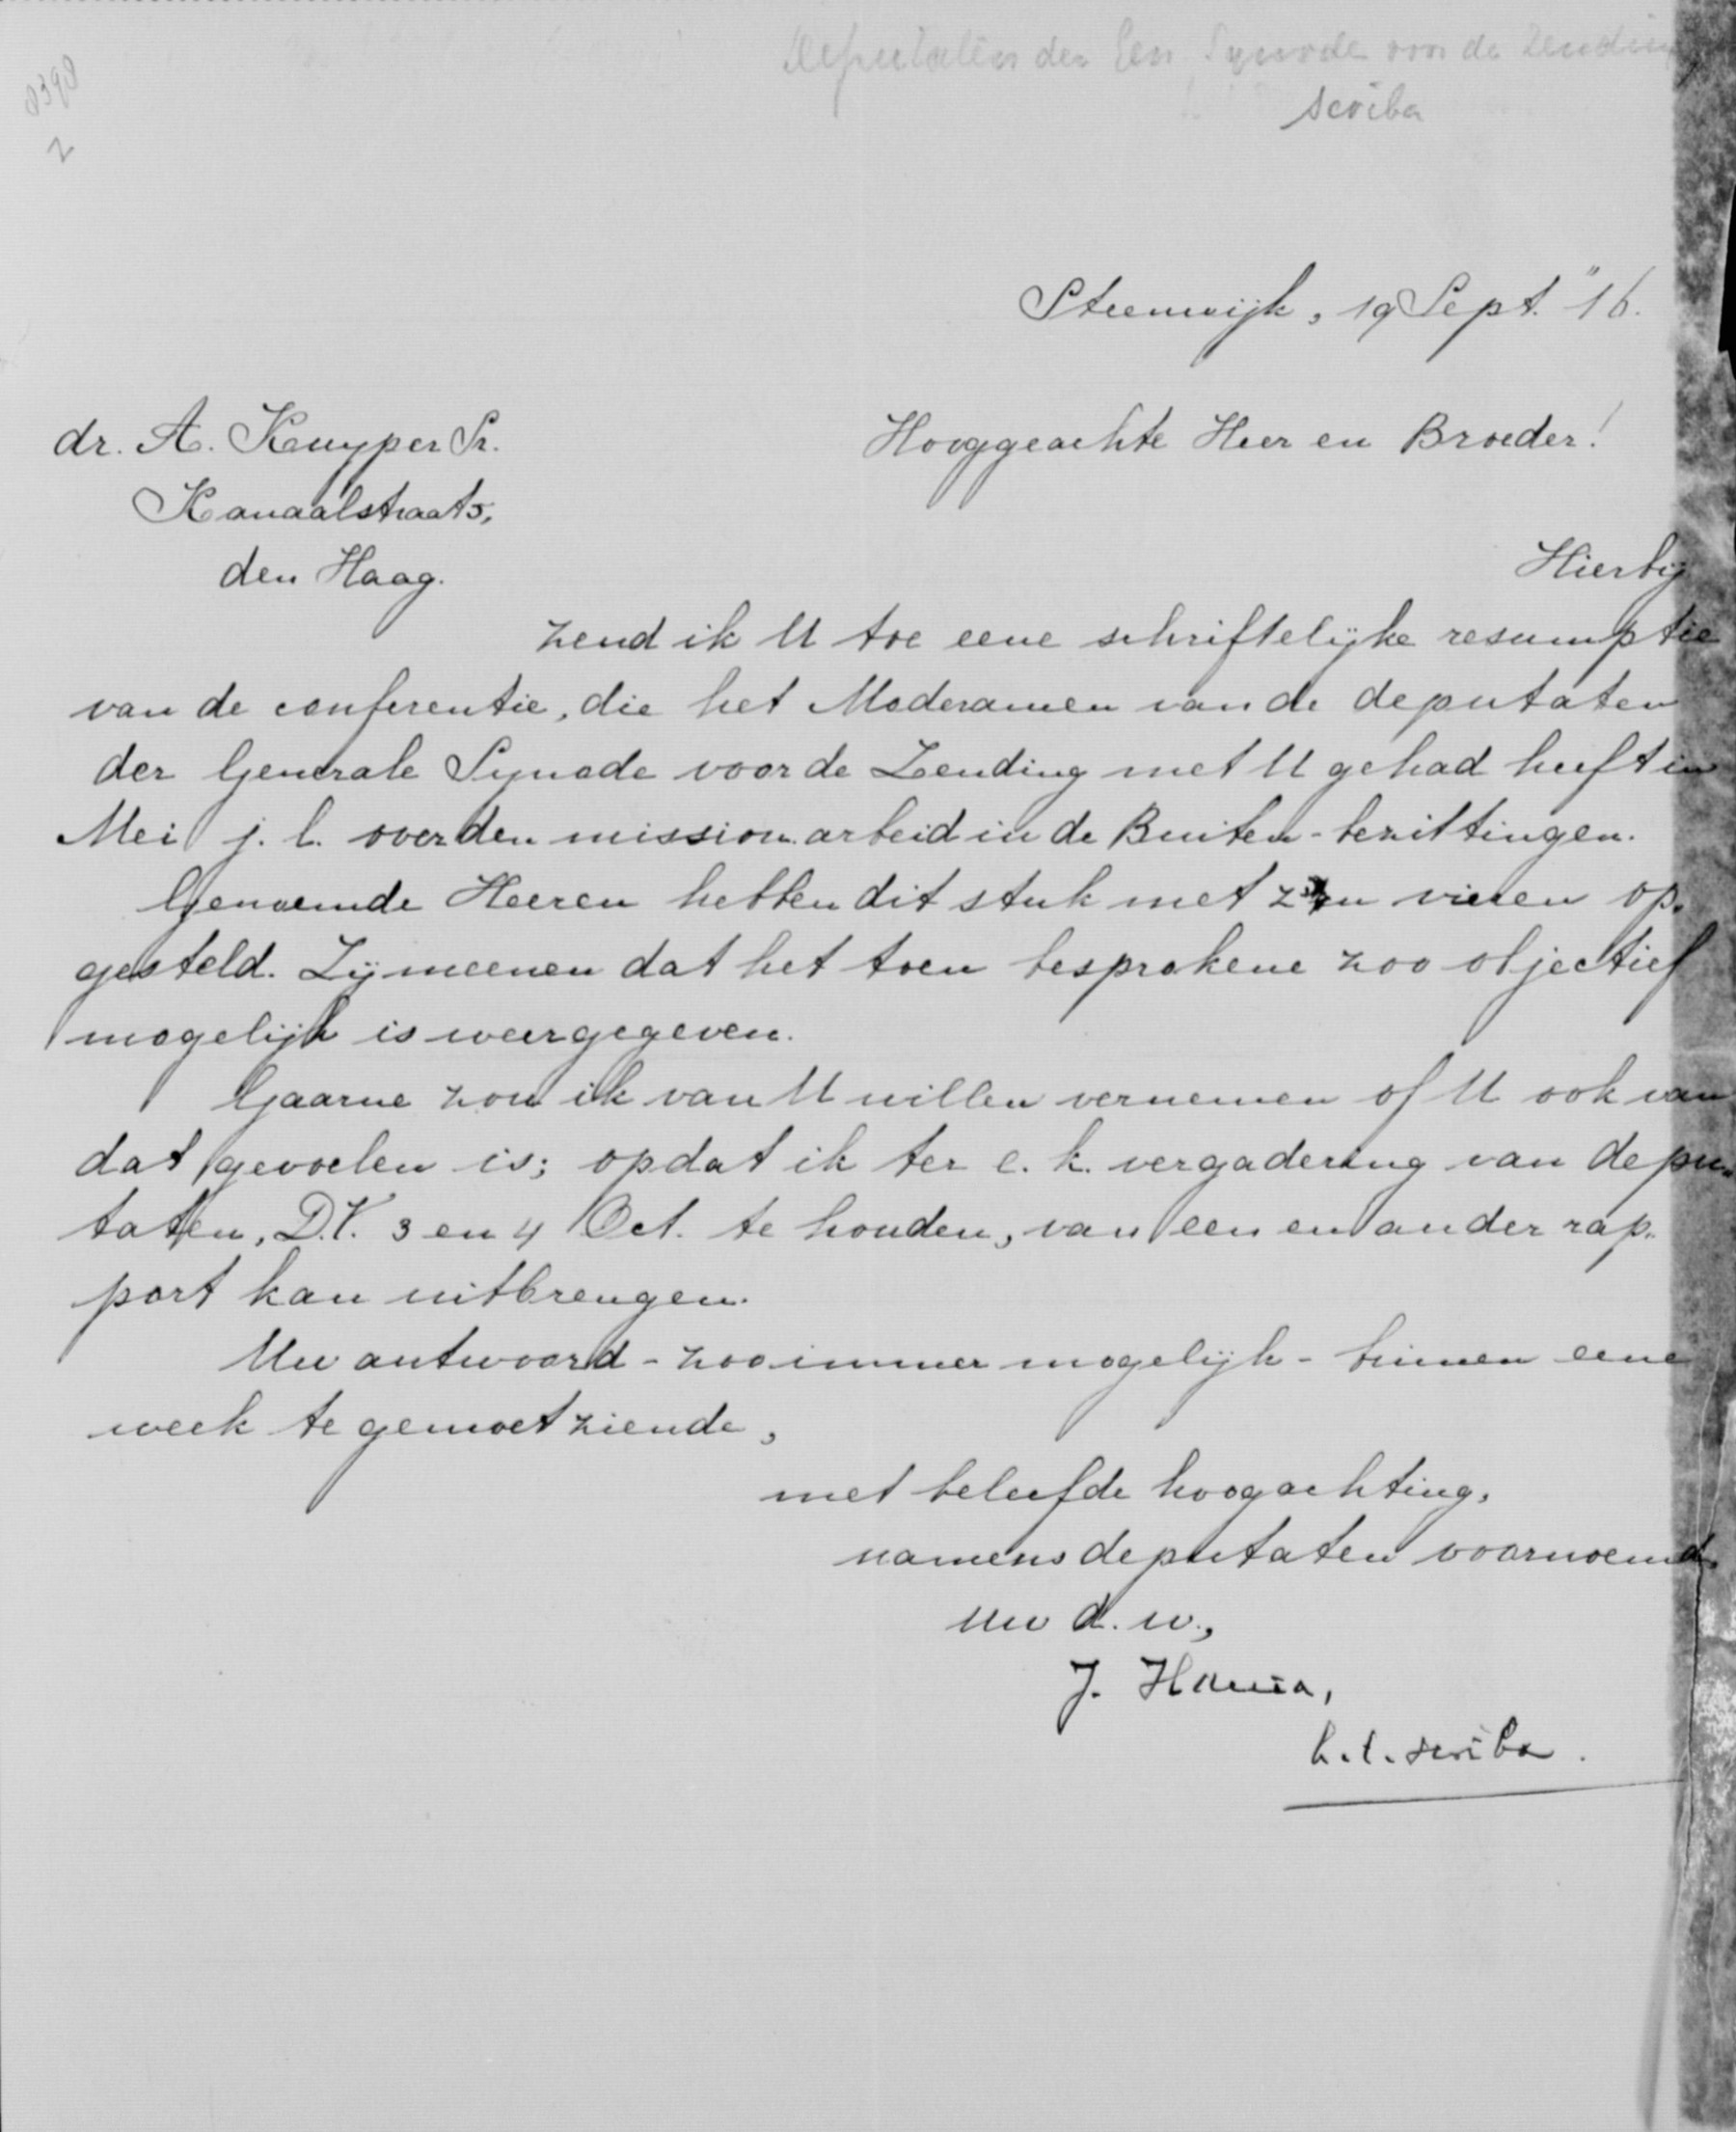 Deputaten der Gen Synode voor de Zending
scriba
8390
2
Steenwijk, 19 Sept. "16.
dr. A. Kuyper Sr.
Hooggeachte Heer en Broeder!
Kanaalstraat 5,
den Haag.
Hierbij
zend ik U toe eene schriftelijke resumptie
van de conferentie, die het Moderamen van de deputaten
der Generale Synode voor de Zending met U gehad heeft in
Mei j. l. over den mission. arbeid in de Buiten-bezittingen.
Genoemde Heeren hebben dit stuk met z'n vieren op-
gesteld. Zij meenen dat het toen besprokene zoo objectief
mogelijk is weergegeven.
Gaarne zou ik van U willen vernemen of U ook van
dat gevoelen is; opdat ik ter e. k. vergadering van depu-
taten, D.V. 3 en 4 Oct. te houden, van een en ander rap-
port kan uitbrengen.
Uw antwoord - zoo immer mogelijk - binnen eene
week te gemoet ziende,
met beleefde hoogachting,
namens deputaten voornoemd,
uw d. w.,
J. Hania,
h. t. scriba.